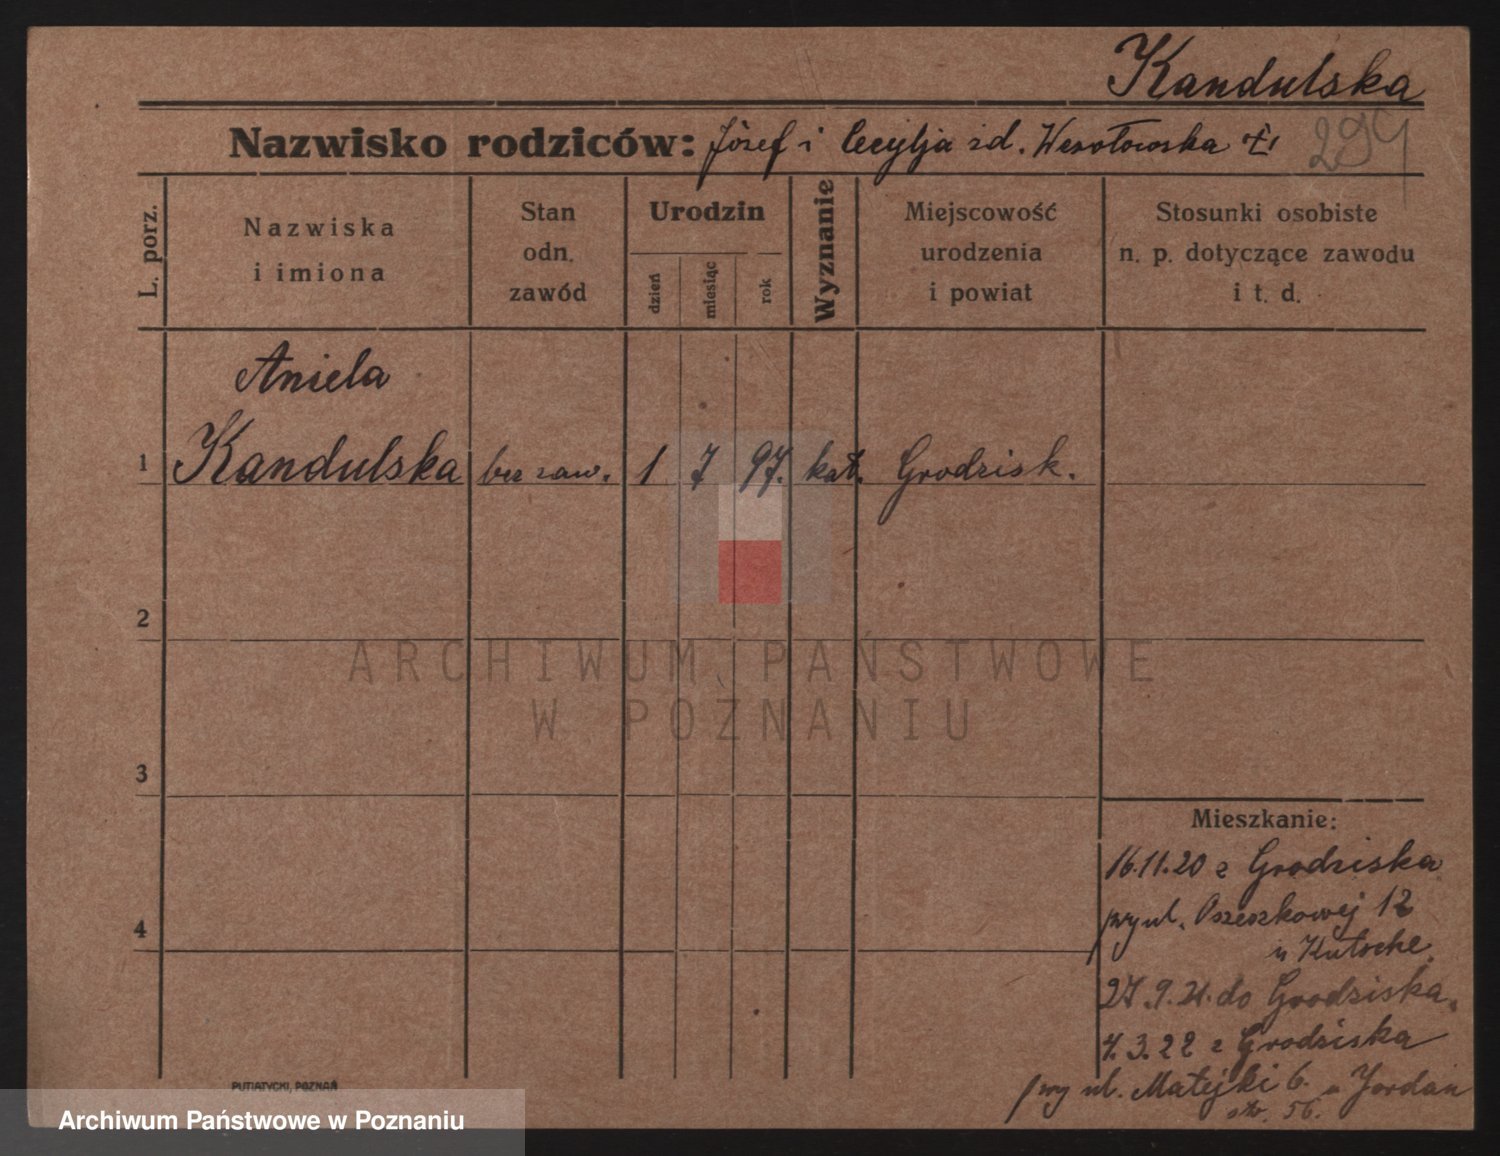 Kandulska
Nazwisko rodziców: Józef i Cecylja zd. Wesołowska
294
L. porz.
Nazwiska
i imiona
Stan
odn.
zawód
Urodzin
dzień
miesiąc
rok
Wyznanie
Miejscowość
urodzenia
i powiat
Stosunki osobiste
n. p. dotyczące zawodu
i t. d.
Aniela
1 Kandulska bez zaw. 1 7 97. kat. Grodzisk.
2
ARCHIWUM PAŃSTWOWE
W POZNANIU
3
Mieszkanie:
16.11.20 z Grodziska
przy ul. Orzeszkowej 12
u Kutsche.
4
27.9.21. do Grodziska.
7.3.22 z Grodziska
przy ul. Matejki 6. u Jordan
56.
PUTIATYCKI, POZNAŃ
Archiwum Państwowe w Poznaniu